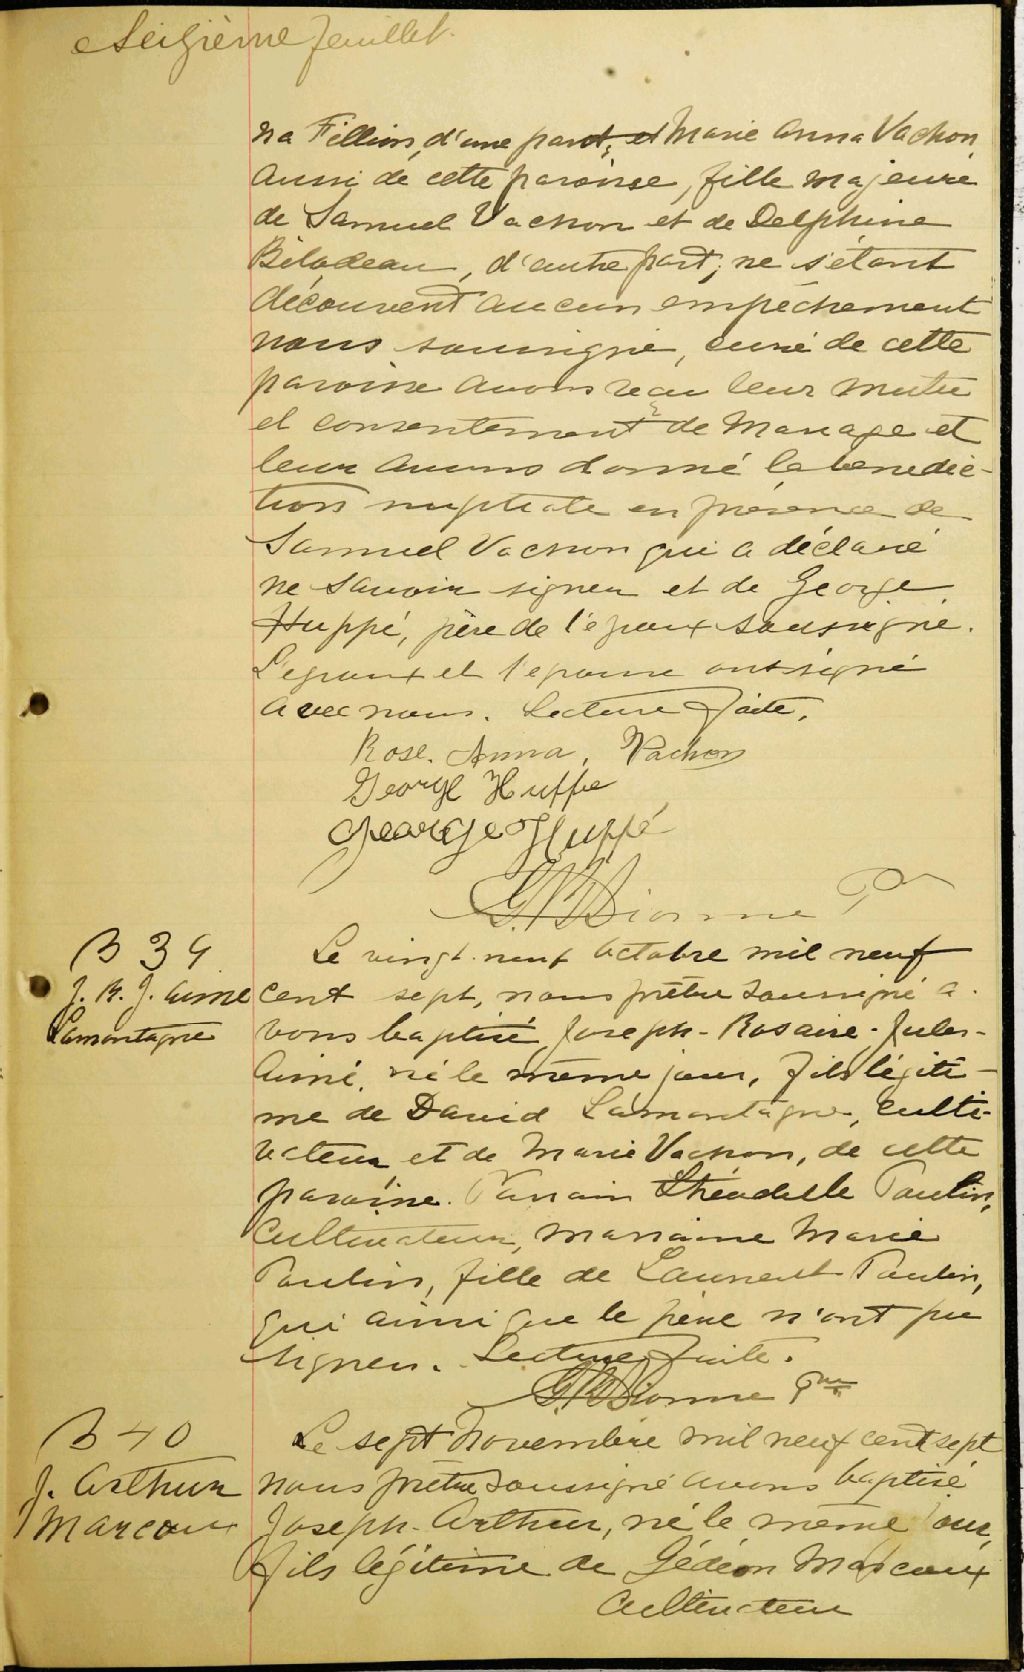 Seizième feuillet.
na Fillion, d'une part; et Marie Anna Vachon
aussi de cette paroisse, fille majeure
de Samuel Vachon et de Delphine
Bilodeau, d'autre part; ne s'étant
découvert aucun empêchement
nous soussigné, curé de cette
paroisse avons reçu leur mutu
el consentement de mariage et
leur avons donné la bénédic-
tion nuptiale en présence de
Samuel Vachon qui a déclaré
ne savoir signer et de George
Huppé, père de l'époux soussigné.
L'époux et l'épouse ont signé
avec nous. Lecture faite.
Rose. Anna. Vachon
George Huppe
George Huppé
Dionne P
B 39
J. R. J. Aimé
Lamontagne
Le vingt-neuf octobre mil neuf
cent sept, nous prêtre soussigné a-
vons baptisé Joseph-Rosaire-Jules-
Aimé, né le même jour, fils légiti-
me de David Lamontagne, culti-
vateur et de Marie Vachon, de cette
paroisse. Parrain Théodule Poulin,
cultivateur, marraine Marie
Poulin, fille de Laurent Poulin,
qui ainsi que le père n'ont pu
signer. Lecture faite.
Dionne Ptre
B 40
J. Arthur
Marcoux
Le sept Novembre mil neuf cent sept
nous prêtre soussigné avons baptisé
Joseph-Arthur, né le même jour,
fils légitime de Gédéon Marcoux
cultivateur